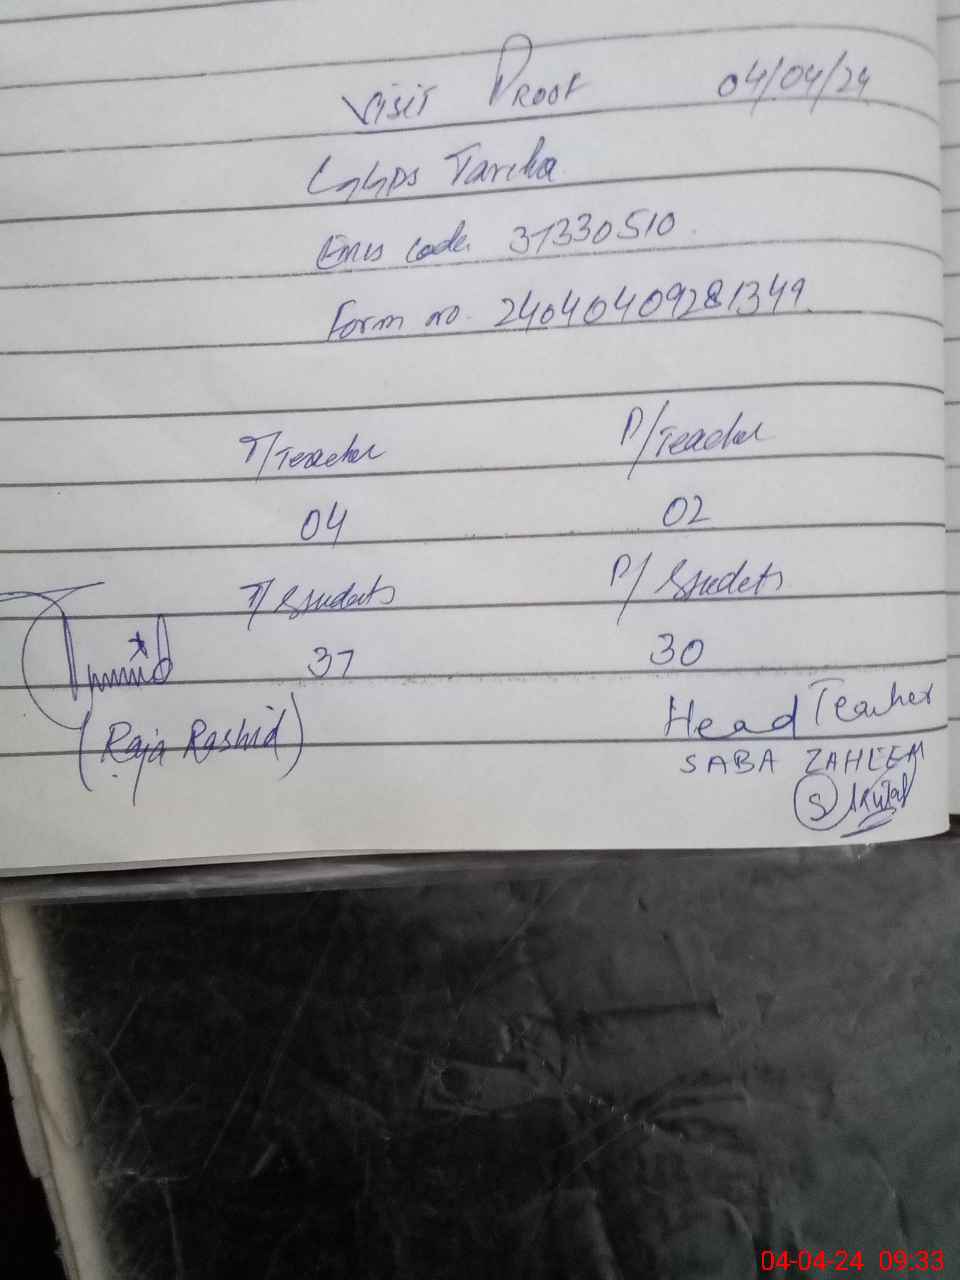 Visit Proof 04/04/24
GGPS Tareha
Emis code. 37330510.
Form no. 24040409281349.
T/Teacher P/Teacher
04 02
T/Students P/Studets
37 30
(Raja Rashid)
Head Teacher
SABA ZAHEEM
04-04-24 09:33